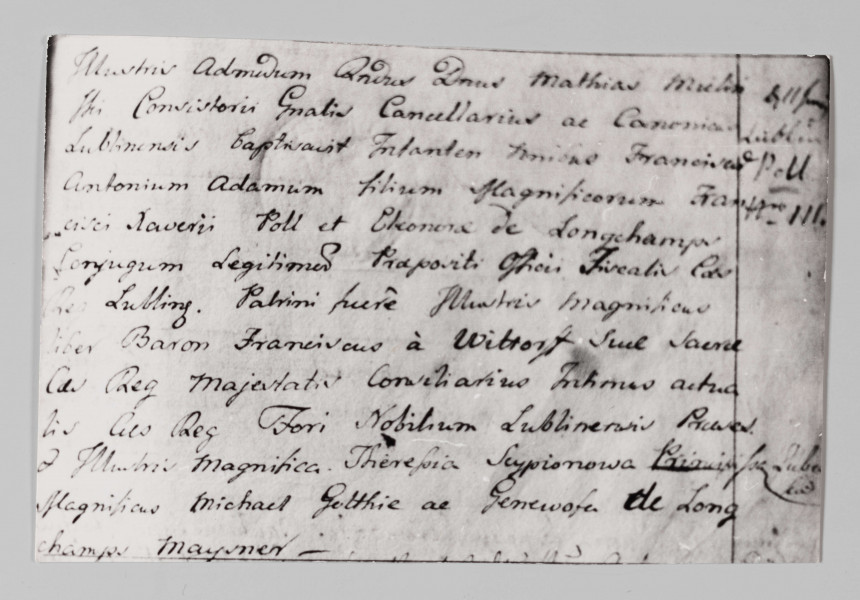 Illustris Admodum Rndus Dnus Mathias
ski Consistorii Gnalis Cancellarius ac Canonicus
Lublinensis baptisavit Infantem Franciscum
Antonium Adamum filium Magnificorum Fran
cisci Xaverii Poll et Eleonoræ de Longchamps
Conjugum Legitimor Præpositi Officii Fiscalis Cæs
Reg Lubling. Patrini fuere Illustris Magnificus
liber Baron Franciscus à Wittorff Suæ Sacræ
Cæs Reg Majestatis Consiliarius Intimus actua
lis Cæs Reg Fori Nobilium Lublinensis Præses.
& Illustris Magnifica Theressia Scypionowa
Magnificus Michael Gotthie ac Genewofa de Long
champs Maysner —
Lublin
Poll
Nro 111.